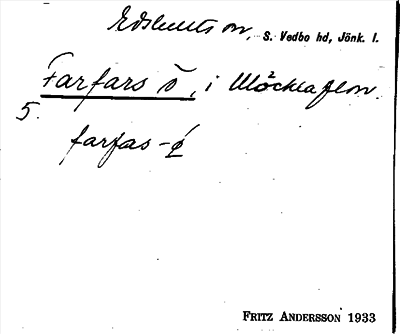 Edshults sn, S. Vedbo hd, Jönk. l.
Farfars ö, i Möcklaflon.
5.
farfas-ǿ
FRITZ ANDERSSON 1933